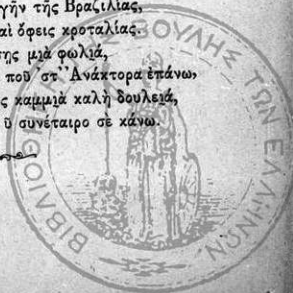 γῆν τῆς Βραζιλίας,
αὶ ὄφεις κροταλίας.
σης μιὰ φωλιά,
ποῦ στ' Ἀνάκτορα ἐπάνω,
ς καμμιὰ καλὴ δουλειά,
ῦ συνέταιρο σὲ κάνω.
ΒΙΒΛΙΟΘΗ ΒΟΥΛΗΣ ΤΩΝ ΕΛΛΗΝΩΝ